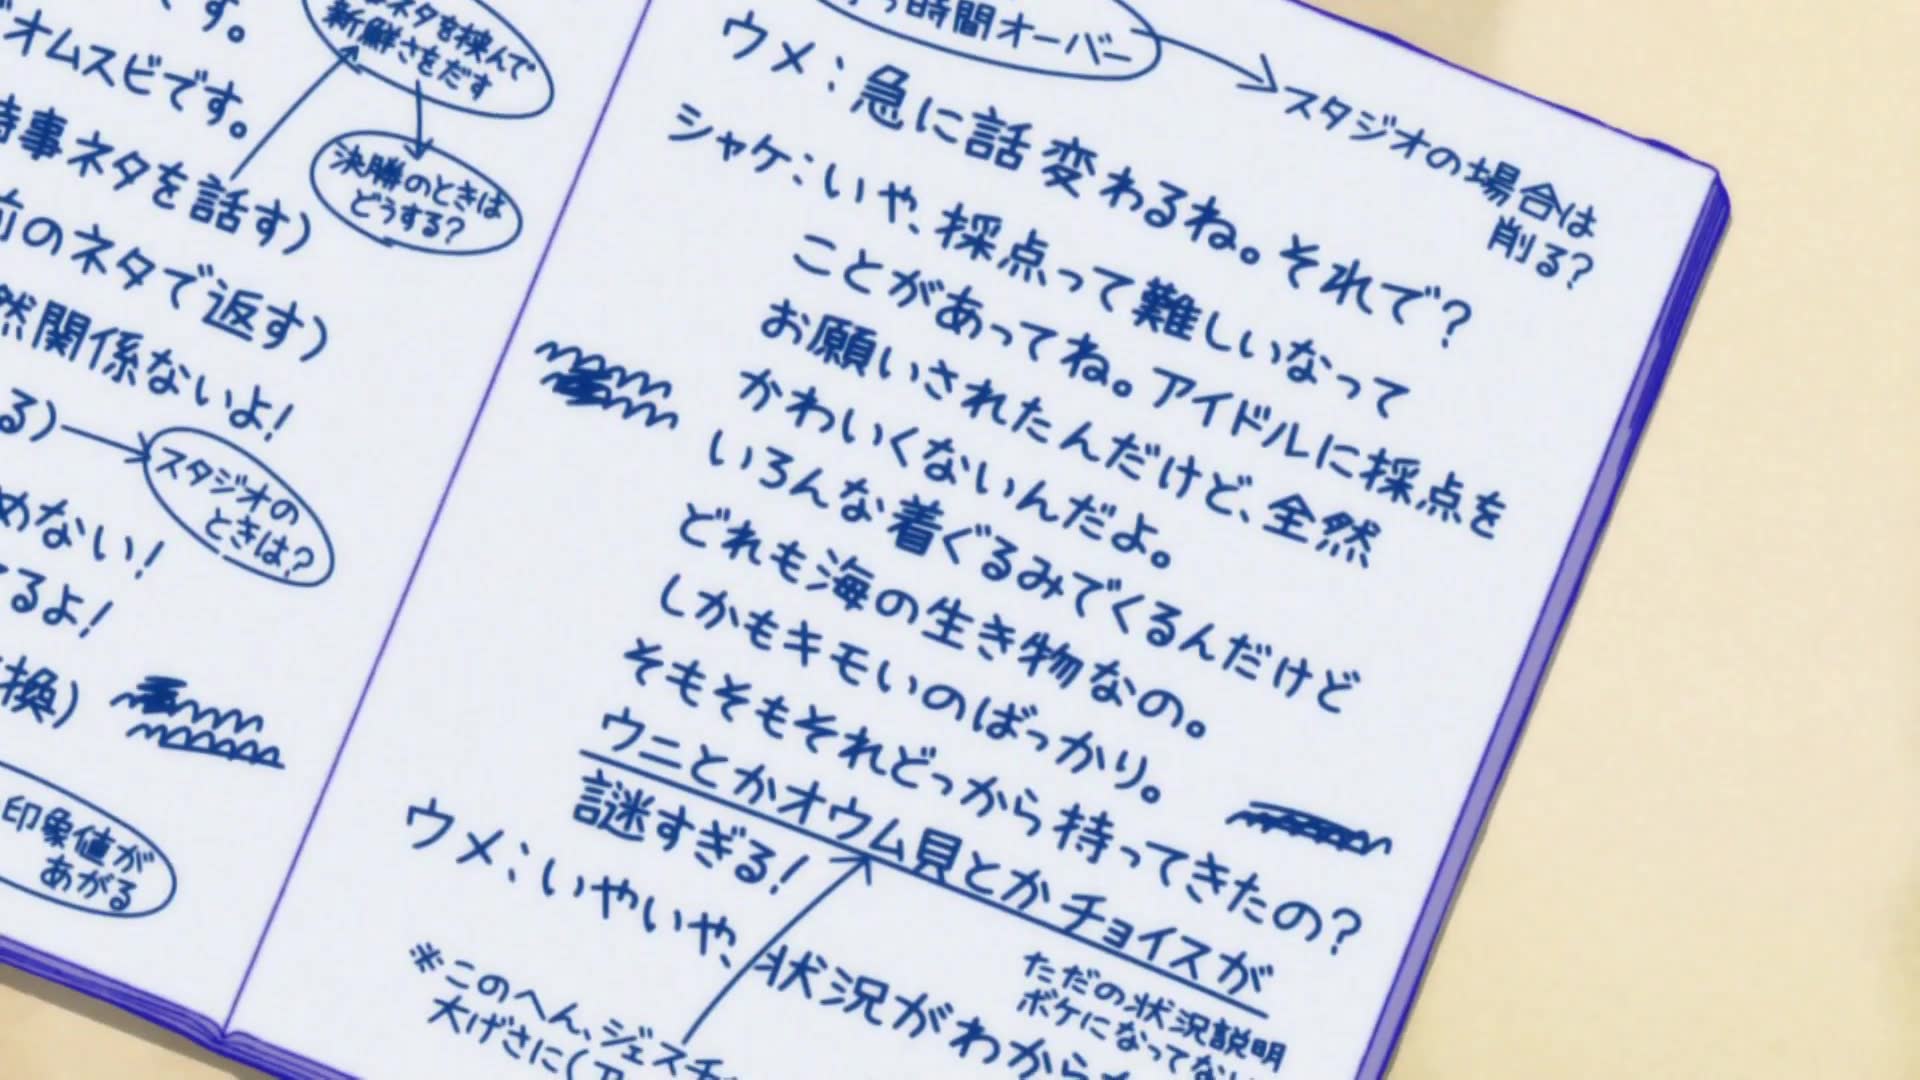 です。
オムスビです。
時事ネタを話す)
前のネタで返す)
然関係ないよ!
る)
めない!
てるよ!
換)
ネタを挟んで
新鮮さをだす
決勝のときは
どうする?
スタジオの
ときは?
印象値が
あがる
時間オーバー
スタジオの場合は
削る?
ウメ:急に話変わるね。それで?
シャケ:いや、採点って難しいなって
ことがあってね。アイドルに採点を
お願いされたんだけど、全然
かわいくないんだよ。
いろんな着ぐるみでくるんだけど
どれも海の生き物なの。
しかもキモいのばっかり。
そもそもそれどっから持ってきたの?
ウニとかオウム貝とかチョイスが
謎すぎる!
ウメ:いやいや、状況がわから
ただの状況説明
ボケになってない
※このへん、ジェスチ
大げさに(